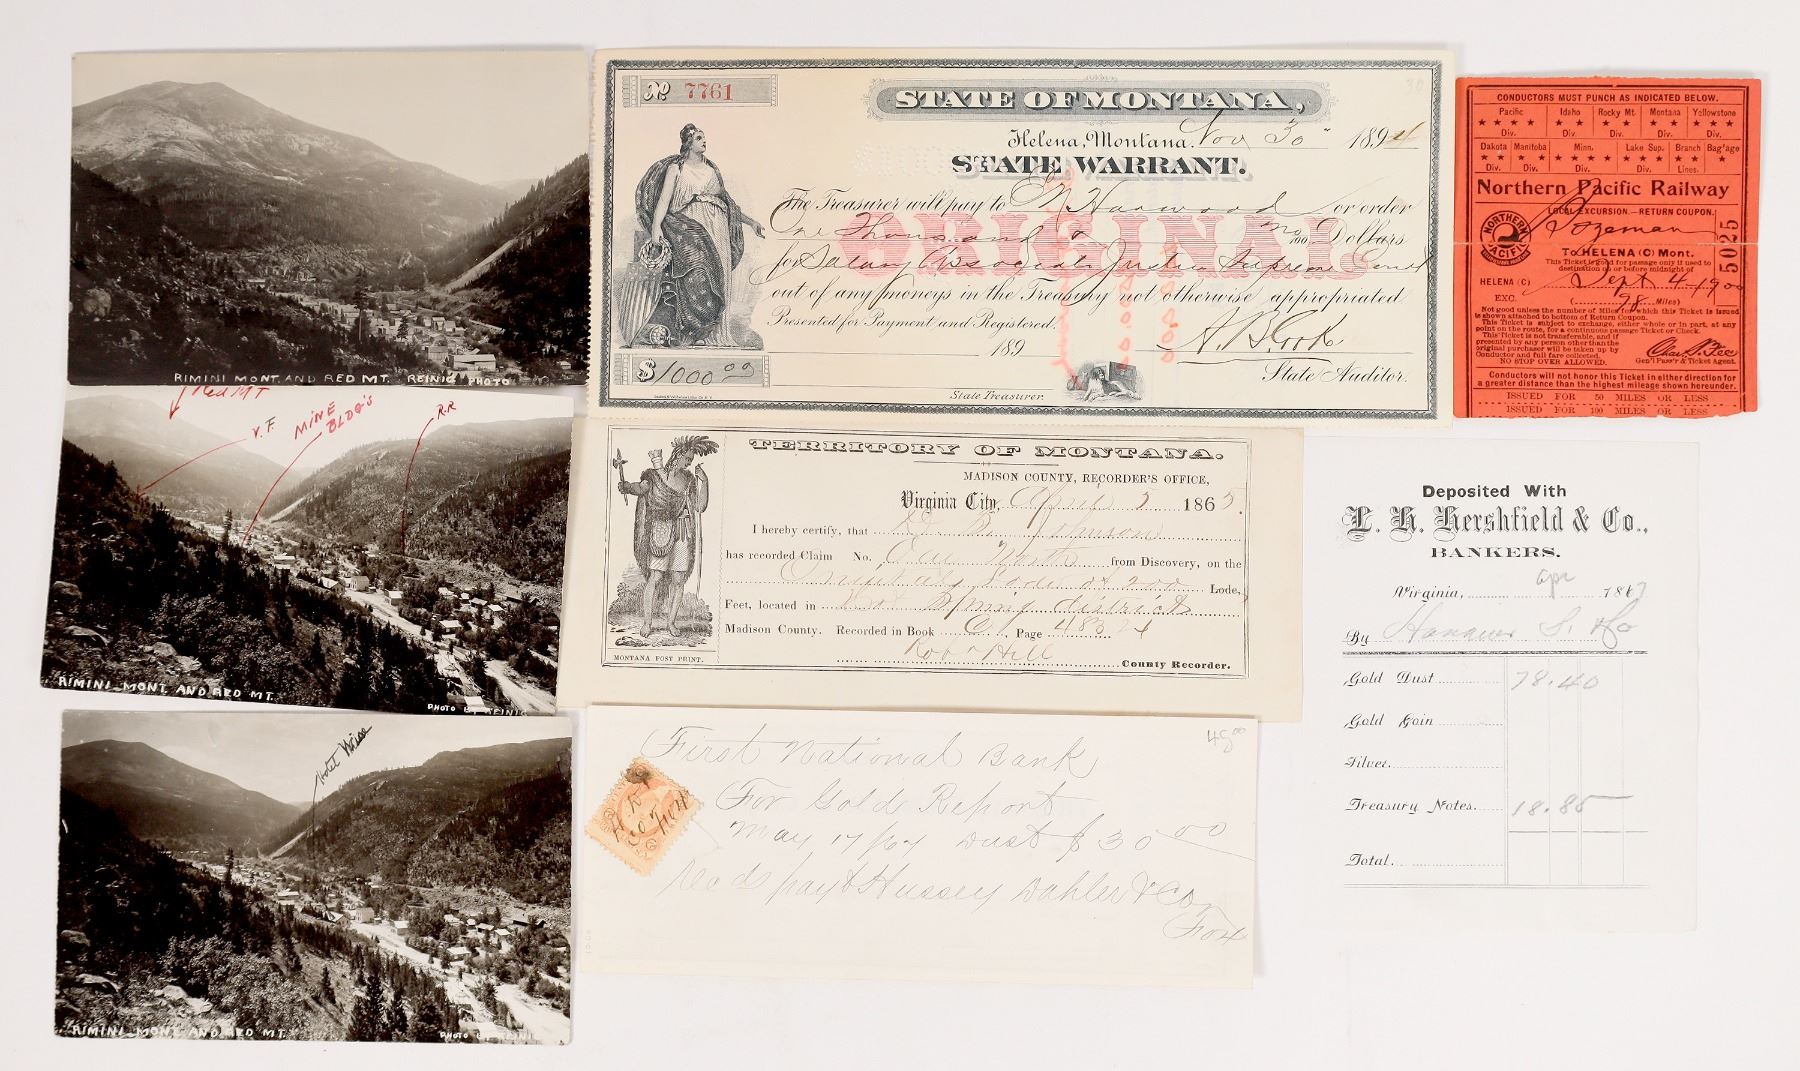 RIMINI MONT. AND RED MT. REINIG PHOTO
Red MT
V.F.
MINE
BLDG'S
R.R
RIMINI MONT. AND RED MT.
PHOTO BY REINIG
Hotel
RIMINI MONT. AND RED MT.
PHOTO BY REINIG
No 7761
30
STATE OF MONTANA,
Helena, Montana. Nov 30 1894
STATE WARRANT.
ORIGINAL
The Treasurer will pay to E N Harwood or order
One Thousand & no/100 Dollars
for Salary Associate Justice Supreme Court
out of any moneys in the Treasury not otherwise appropriated
Presented for Payment and Registered.
189
A. B. Cook
$1000.00
State Treasurer.
State Auditor.
TERRITORY OF MONTANA.
MADISON COUNTY, RECORDER'S OFFICE,
Virginia City, April 5 1865.
I hereby certify, that Johnson
has recorded Claim No. One North from Discovery, on the
Lode of 200 Lode,
Feet, located in Hot Spring district
Madison County. Recorded in Book Page
Hill
County Recorder.
MONTANA POST PRINT.
First National Bank
48.00
For Gold Report
May 17/67 Dust $30 00
pay Hussey Dahler & Co
CONDUCTORS MUST PUNCH AS INDICATED BELOW.
Pacific Idaho Rocky Mt. Montana Yellowstone
Div. Div. Div. Div. Div.
Dakota Manitoba Minn. Lake Sup. Branch Bag'age
Div. Div. Div. Div. Lines.
Northern Pacific Railway
LOCAL EXCURSION.—RETURN COUPON.
NORTHERN PACIFIC
Bozeman
To HELENA (C) Mont.
This Ticket is good for passage only if used to
destination on or before midnight of
HELENA (C) Sept 4 - 1900
EXC. (98 Miles)
15025
Not good unless the number of Miles for which this Ticket is issued
is shown attached to bottom of Return Coupon.
This Ticket is subject to exchange, either whole or in part, at any
point on the route, for a continuous passage Ticket or Check.
This Ticket is not transferable, and if
presented by any person other than the
original purchaser will be taken up by
Conductor and full fare collected.
NO STOP OVER ALLOWED.
Chas. S. Fee
Gen'l Pass'r & Ticket Agent.
Conductors will not honor this Ticket in either direction for
a greater distance than the highest mileage shown hereunder.
ISSUED FOR 50 MILES OR LESS
ISSUED FOR 100 MILES OR LESS
Deposited With
L. H. Hershfield & Co.,
BANKERS.
Virginia, Apr 1867
By
Gold Dust 78.40
Gold Coin
Silver
Treasury Notes. 18.85
Total.